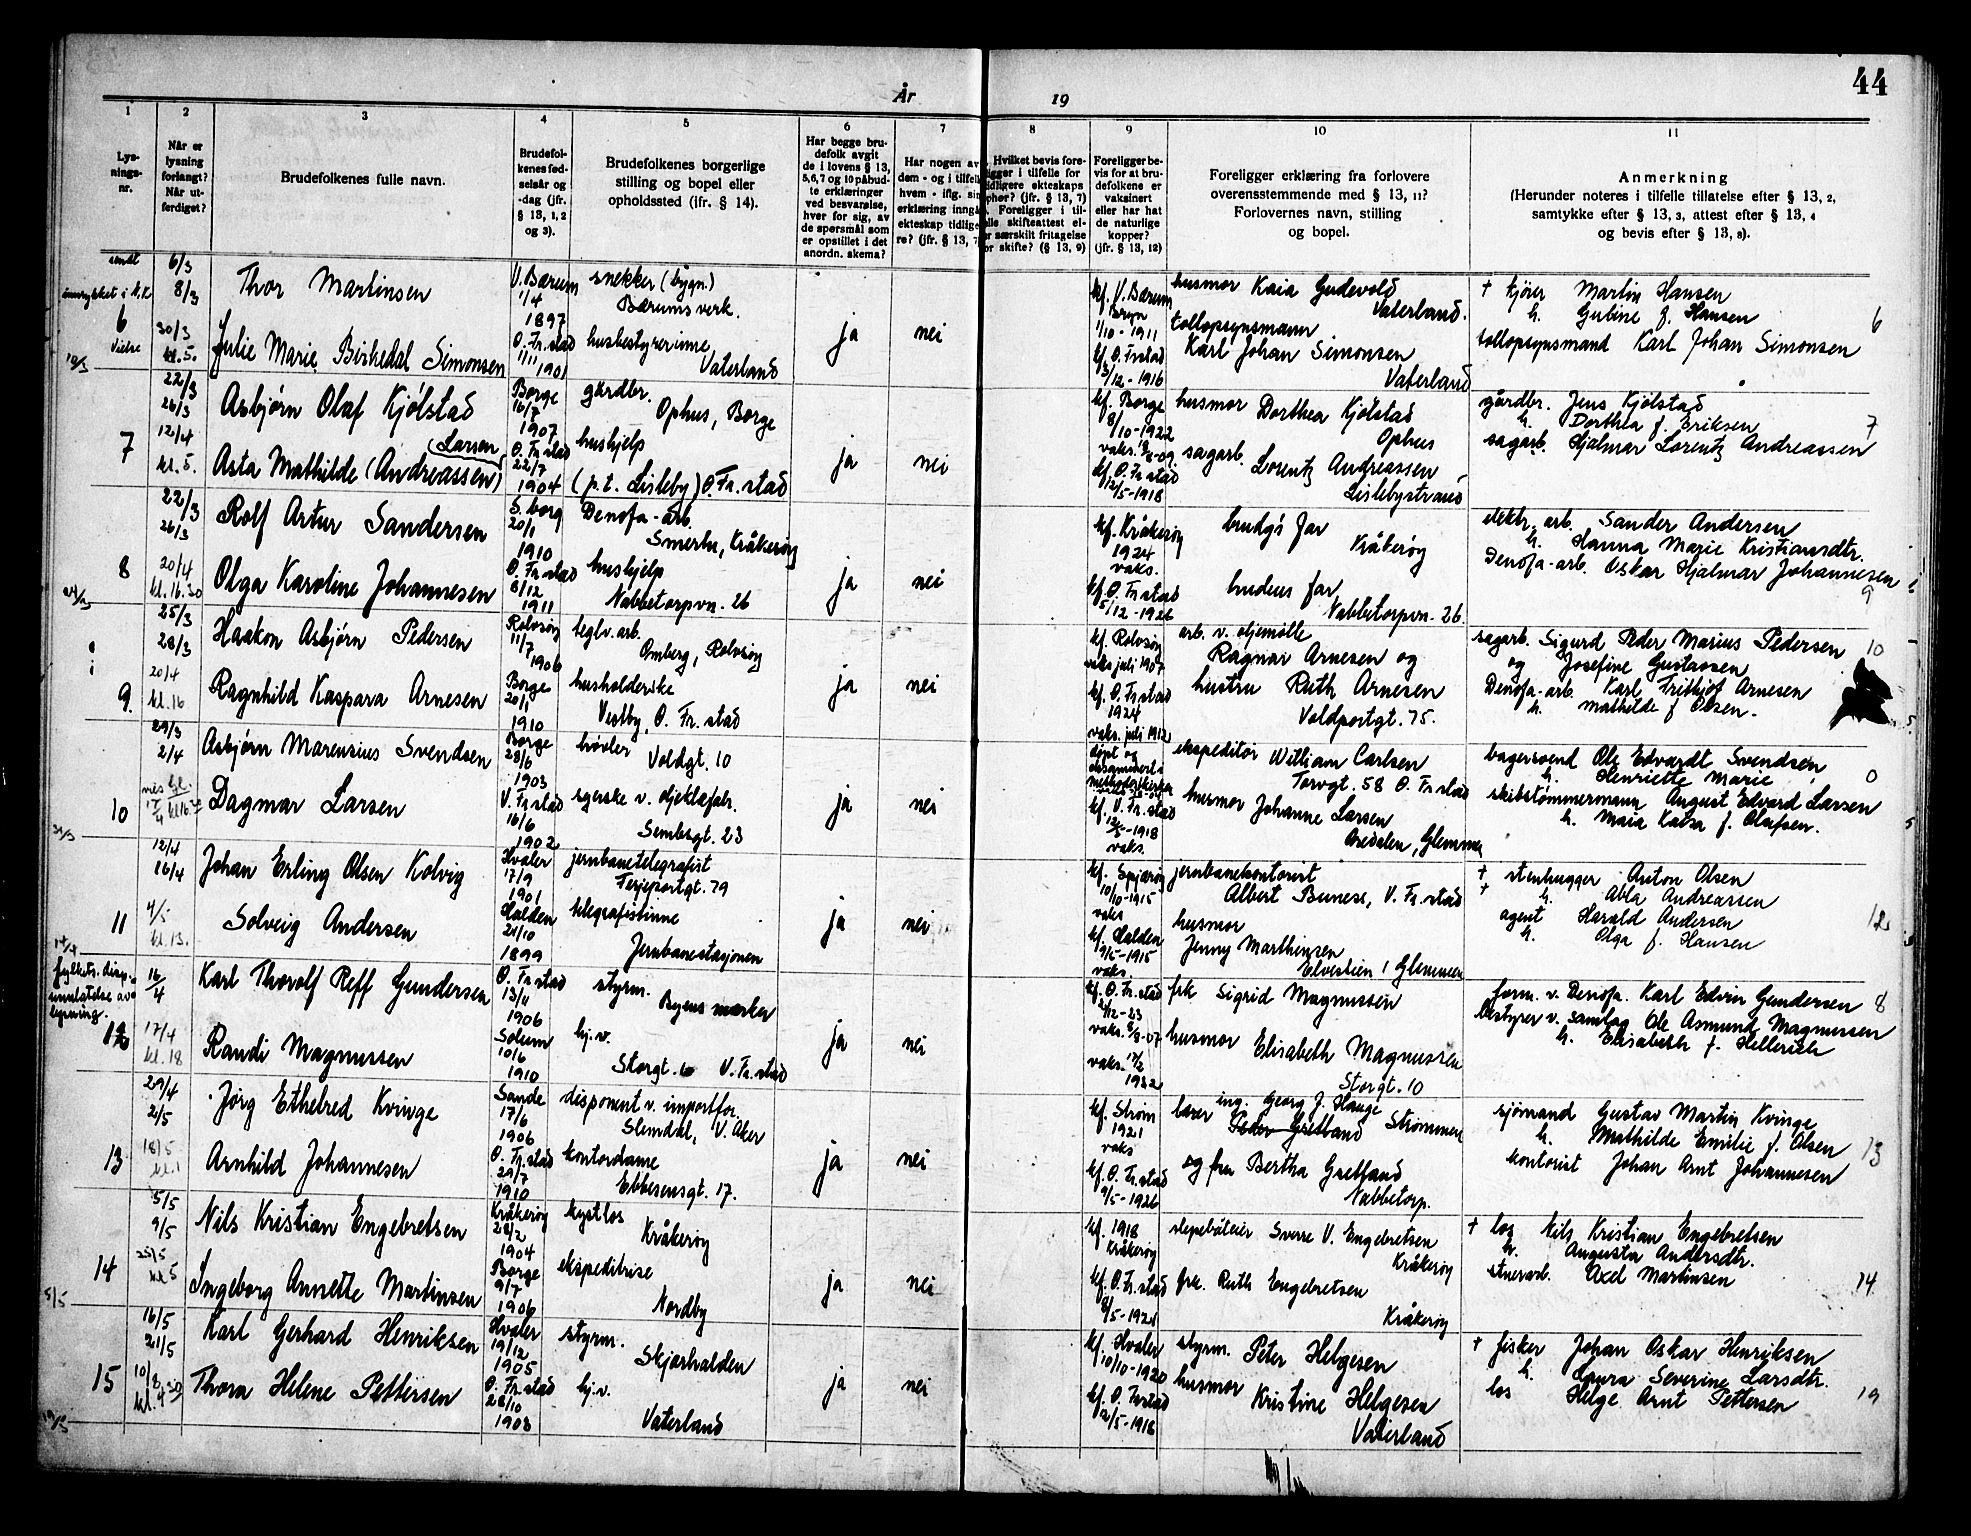 44
År
19
1
2
3
4
5
6
7
8
9
10
11
Lys-
nings-
nr.
Når er
lysning
forlangt?
Når ut-
ferdiget?
Brudefolkenes fulle navn.
Brudefol-
kenes fød-
selsår og
-dag (jfr.
§ 13, 1, 2
og 3).
Brudefolkenes borgerlige
stilling og bopel eller
opholdssted (jfr. § 14).
Har begge bru-
defolk avgit
de i lovens § 13,
5, 6, 7 og 10 påbud-
te erklæringer
ved besvarelse,
hver for sig, av
de spørsmål som
er opstillet i det
anordn. skema?
Har nogen av
dem - og i tilfelle
hvem - iflg. sin
erklæring inngå
ekteskap tidlige-
re? (jfr. § 13, 7
Hvilket bevis fore-
ligger i tilfelle for
tidligere ekteskaps
ophør? (jfr. § 13, 7)
Foreligger i til-
felle skifteattest el-
er særskilt fritagelse
or skifte? (§ 13, 9)
Foreligger be-
vis for at bru-
defolkene er
vaksinert
eller har hat
de naturlige
kopper?
(jfr. § 13, 12)
Foreligger erklæring fra forlovere
overensstemmende med § 13, 11?
Forlovernes navn, stilling
og bopel.
Anmerkning
(Herunder noteres i tilfelle tillatelse efter § 13, 2,
samtykke efter § 13, 3, attest efter § 13, 4
og bevis efter § 13, 8).
6
Vielse
6/3
8/3
30/3
kl. 5.
Thor Martinsen
Julie Marie Birkedal Simonsen
V. Bærum
1/4
1897
Ø. Fr.stad
1/11 1901
snekker (bygn.)
Bærums verk.
husbestyrerinne
Vaterland
ja
nei
kf. V. Bærum
Bryn
1/10 - 1911
kf. Ø. Fr.stad
3/12 - 1916
husmor Kaia Gudevold
Vaterland.
tollopsynsmann
Karl Johan Simonsen
Vaterland
† kjører Martin Hansen
h. Gubine f. Hansen
tollopsynsmand Karl Johan Simonsen
6
19/3
7
22/3
26/3
12/4
kl. 5.
Asbjørn Olaf Kjølstad
(Larsen)
Asta Mathilde (Andreassen)
Borge
16/7
1907
Ø. Fr.stad
22/7
1904
gårdbr.
Ophus, Borge
hushjelp
(p.t. Lisleby) Ø. Fr.stad
ja
nei
kf. Borge
8/10 - 1922
kf. Ø. Fr.stad
12/5 - 1918
husmor Dorthea Kjølstad
Ophus
sagarb. Lorentz Andreassen
Lislebystrand
gårdbr. Jens Kjølstad
h. Dorthea f. Eriksen
sagarb. Hjalmar Lorentz Andreassen
7
8
22/3
26/3
20/4
kl. 16.30
Rolf Artur Sandersen
Olga Karoline Johannesen
S.borg
20/1
1910
Ø. Fr.stad
8/12
1911
Denofa-arb.
Smertu, Kråkerøy
hushjelp
Nabbetorpvn. 26
ja
nei
kf. Kråkerøy
1924
vaks.
kf. Ø. Fr.stad
5/12 - 1926
brudg's far
Kråkerøy
brudens far
Nabbetorpvn. 26
elektr. arb. Sander Andersen
h. Hanna Marie Kristiansdtr.
Denofa-arb. Oskar Hjalmar Johannesen
9
9.
25/3
28/3
20/4
kl. 16
Haakon Asbjørn Pedersen
Ragnhild Kaspara Arnesen
Rolvsøy
11/7
1906
Borge
20/1
1910
teglv. arb.
Omberg, Rolvsøy
husholderske
Vestby, Ø. Fr.stad
ja
nei
kf. Rolvsøy
vaks juli 1907
kf. Ø. Fr.stad
1924
vaks. juli 1912
arb. v. oljemølle
Ragnar Arnesen og
hustru Ruth Arnesen
Voldportgt. 75.
sagarb. Sigurd Peder Marius Pedersen
og Josefine Gustavsen
Denofa-arb. Karl Frithjof Arnesen
h. Mathilde f Olsen.
10
10
31/3
29/3
2/4
Asbjørn Marensius Svendsen
Dagmar Larsen
Borge
28/6
1903
V. Fr.stad
16/6
1902
bøvler
Voldgt. 10
syerske v. oljeklæfabr.
Sembsgt. 23
ja
nei
døpt og
kf. V. Fr.stad
vaks.
ekspeditør William Carlsen
Torvgt. 58 Ø. Fr.stad
husmor Johanne Larsen
Oredalen, Glemmen
bagersvend Ole Edvardt Svendsen
h. Henriette Marie
skibstømmermann August Edvard Larsen
h. Maia Kaisa f. Olafsen.
11
12/4
16/4
4/5
kl. 13.
Johan Erling Olsen Kolvig
Solveig Andersen
Hvaler
17/9
1901
Halden
21/10
1899
jernbanetelegrafist
Ferjeportgt. 79
telegrafistinne
Jernbanestasjonen
ja
nei
kf. Spjærøy
10/10 - 1915
vaks
kf. Halden
9/5 - 1915
vaks.
jernbanekontorist
Albert Bunese, V. Fr.stad
husmor
Jenny Marthinsen
Elvestien 1 Glemmen
† stenhugger Anton Olsen
† h. Abla Andreassen
agent Harald Andersen
h. Olga f. Hansen
12
fylkets. disp.
lysning.
12
16/4
17/4
kl. 18
Karl Thorolf Reff Gundersen
Randi Magnussen
Ø. Fr.stad
13/11
1906
Solum
10/6
1910
styrm.
Byens marker
hj.v.
Storgt. 10 V. Fr.stad
ja
nei
kf. Ø. Fr.stad
vaks.
1932
frk Sigrid Magnussen
husmor Elisabeth Magnussen
Storgt. 10
form. v. Denofa. Karl Edvin Gundersen
bestyrer v. samlag Ole Asmund Magnussen
h. Elisabeth f. Hellerich
8
13
29/4
2/5
18/5
kl. 1
Jørg Ethelred Kvinge
Arnhild Johannesen
Sande
17/6
1906
Ø. Fr.stad
29/7
1910
disponent v. importfor.
Slemdal, V. Aker
kontordame
Ebbesensgt. 17.
ja
nei
kf. Strøm
1921
vaks
kf. Ø. Fr.stad
9/5 - 1926
ing. Georg J. Hauge
lærer Peder Gretland Strømmen
og fru Bertha Gretland
Nabbetorp.
sjømand Gustav Martin Kvinge
h. Mathilde Emilie f. Olsen
kontorist Johan Arnt Johannesen
13
14
5/5
9/5
25/5
kl 5
Nils Kristian Engebretsen
Ingeborg Annette Martinsen
Kråkerøy
28/2
1904
Borge
9/7
1906
kystlos
Kråkerøy
ekspeditrise
Nordby
ja
nei
kf. 1918
Kråkerøy
kf. Ø. Fr.stad
8/5 - 1921
slepebåteier Sverre V. Engebretsen
Kråkerøy
frk. Ruth Engebretsen
Kråkerøy
† los Nils Kristian Engebretsen
h. Augusta Andersdtr.
stuerarb. Axel Martinsen
14
15
16/5
21/5
10/8
kl. 4 30
Karl Gerhard Henriksen
Thora Helene Pettersen
Hvaler
19/12
1905
Ø. Fr.stad
28/10
1903
styrm.
Skjærhalden
hj.v.
Vaterland
ja
nei
kf. Hvaler
10/10 - 1920
kf. Ø. Fr.stad
styrm. Peter Helgesen
husmor Kristine Helgesen
Vaterland
† fisker Johan Oskar Henriksen
h. Laura Severine Larsdtr.
los Helge Arnt Pettersen
19